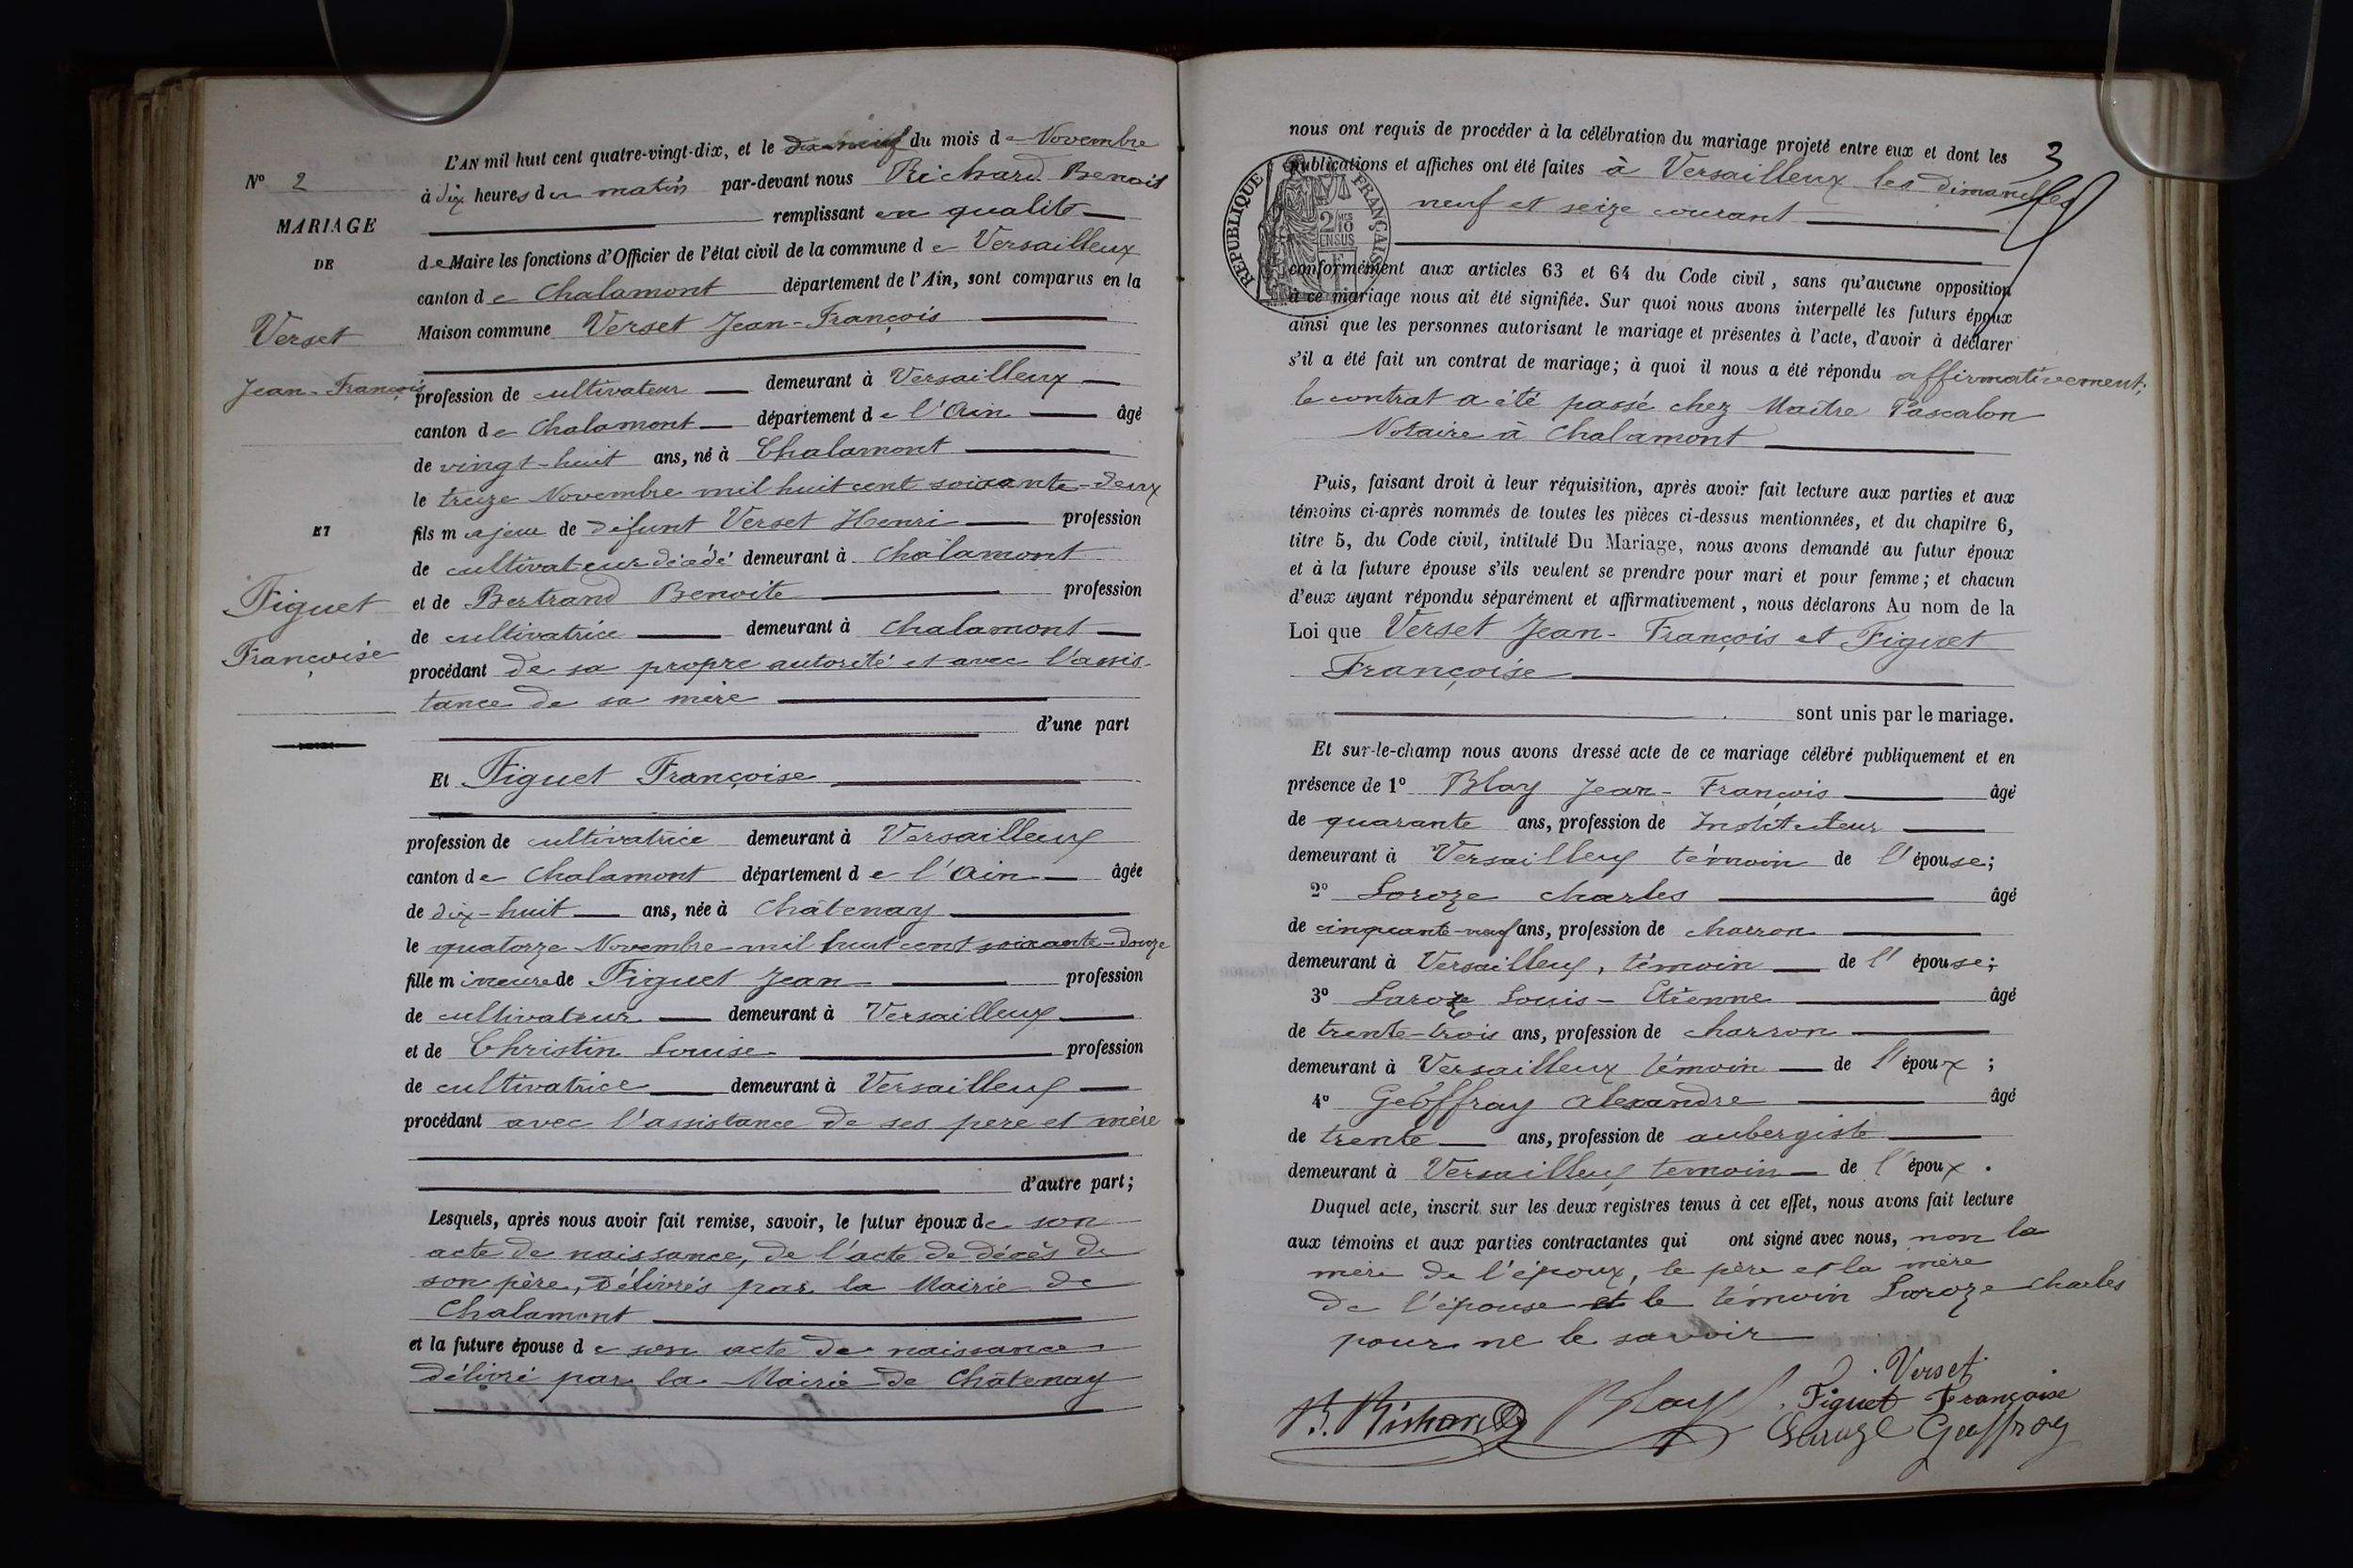 N° 2
MARIAGE
DE
Verset
Jean-François
ET
Figuet
Françoise
L'AN mil huit cent quatre-vingt-dix, et le dix-neuf du mois de Novembre
à dix heures du matin par-devant nous Richard Benoit
remplissant en qualité
de Maire les fonctions d'Officier de l'état civil de la commune de Versailleux
canton de Chalamont département de l'Ain, sont comparus en la
Maison commune Verset Jean-François
profession de cultivateur demeurant à Versailleux
canton de Chalamont département de l'Ain âgé
de vingt-huit ans, né à Chalamont
le treize Novembre mil huit cent soixante-deux
fils majeur de défunt Verset Henri profession
de cultivateur décédé demeurant à Chalamont
et de Bertrand Benoite profession
de cultivatrice demeurant à Chalamont
procédant de sa propre autorité et avec l'assis-
tance de sa mère
d'une part
Et Figuet Françoise
profession de cultivatrice demeurant à Versailleux
canton de Chalamont département de l'Ain âgée
de dix-huit ans, née à Châtenay
le quatorze Novembre mil huit cent soixante-douze
fille mineure de Figuet Jean profession
de cultivateur demeurant à Versailleux
et de Christin Louise profession
de cultivatrice demeurant à Versailleux
procédant avec l'assistance de ses pere et mère
d'autre part;
Lesquels, après nous avoir fait remise, savoir, le futur époux de son
acte de naissance, de l'acte de décès de
son père, délivrés par la Mairie de
Chalamont
et la future épouse de son acte de naissance
délivré par la Mairie de Châtenay
3
nous ont requis de procéder à la célébration du mariage projeté entre eux et dont les
publications et affiches ont été faites à Versailleux les dimanches
neuf et seize courant
RÉPUBLIQUE FRANÇAISE
2/10 EN SUS
conformément aux articles 63 et 64 du Code civil, sans qu'aucune opposition
à ce mariage nous ait été signifiée. Sur quoi nous avons interpellé les futurs époux
ainsi que les personnes autorisant le mariage et présentes à l'acte, d'avoir à déclarer
s'il a été fait un contrat de mariage; à quoi il nous a été répondu affirmativement;
le contrat a été passé chez Maître Pascalon
Notaire à Chalamont
Puis, faisant droit à leur réquisition, après avoir fait lecture aux parties et aux
témoins ci-après nommés de toutes les pièces ci-dessus mentionnées, et du chapitre 6,
titre 5, du Code civil, intitulé Du Mariage, nous avons demandé au futur époux
et à la future épouse s'ils veulent se prendre pour mari et pour femme; et chacun
d'eux ayant répondu séparément et affirmativement, nous déclarons Au nom de la
Loi que Verset Jean-François et Figuet
Françoise
sont unis par le mariage.
Et sur-le-champ nous avons dressé acte de ce mariage célébré publiquement et en
présence de 1° Blay Jean-François âgé
de quarante ans, profession de Instituteur
demeurant à Versailleux témoin de l'épouse;
2° Laroze Charles âgé
de cinquante-neuf ans, profession de charron
demeurant à Versailleux, témoin de l'épouse;
3° Laroze Louis-Etienne âgé
de trente-trois ans, profession de charron
demeurant à Versailleux témoin de l'époux;
4° Geoffray Alexandre âgé
de trente ans, profession de aubergiste
demeurant à Versailleux temoin de l'époux.
Duquel acte, inscrit sur les deux registres tenus à cet effet, nous avons fait lecture
aux témoins et aux parties contractantes qui ont signé avec nous, non la
mère de l'époux, le père et la mère
de l'épouse et le témoin Laroze Charles
pour ne le savoir
Verset
B. Richard Blay Figuet Françoise
Laroze Geoffray